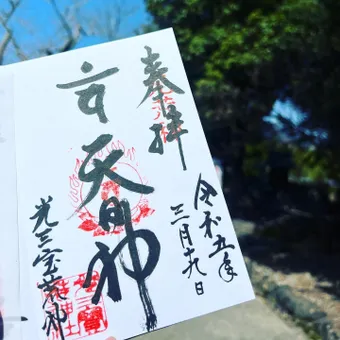 奉拝
天明神
令和五年
三月十九日
光三宝荒神